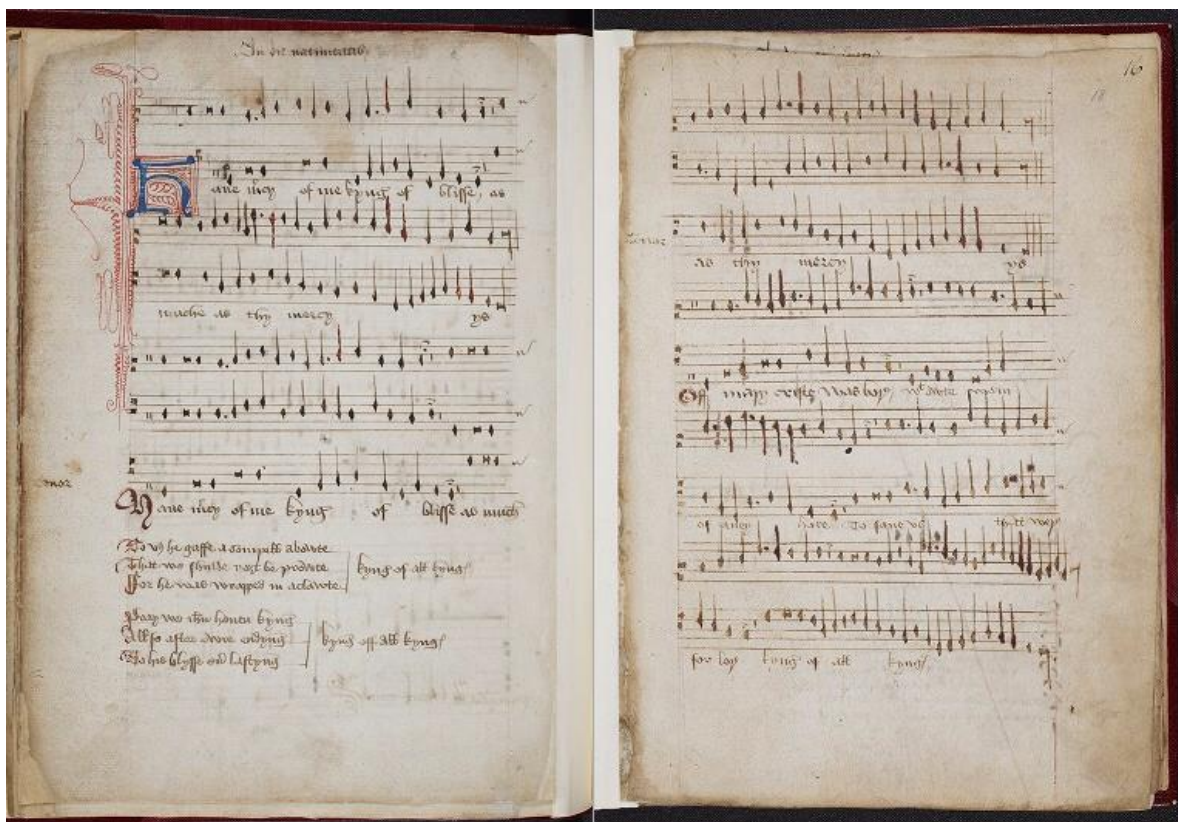 In die natiuitatis
Haue mcy of me kyng of blisse, as
muche as thy mercy ys
enor
Haue mcy of me kyng of blisse as much
To vs he gaffe a sompell abowte
That we shulde not be prowte
For he was wrapped in a clowte
kyng of all kyng
Pray we ihu heuen kyng
All so after owre endyng
To his blysse euer lastyng
kyng off all kyng
16
18
as thy mercy ys
Off mary criste was bor wt owte
of any hore To saue vs
for loy kyng of all kyng